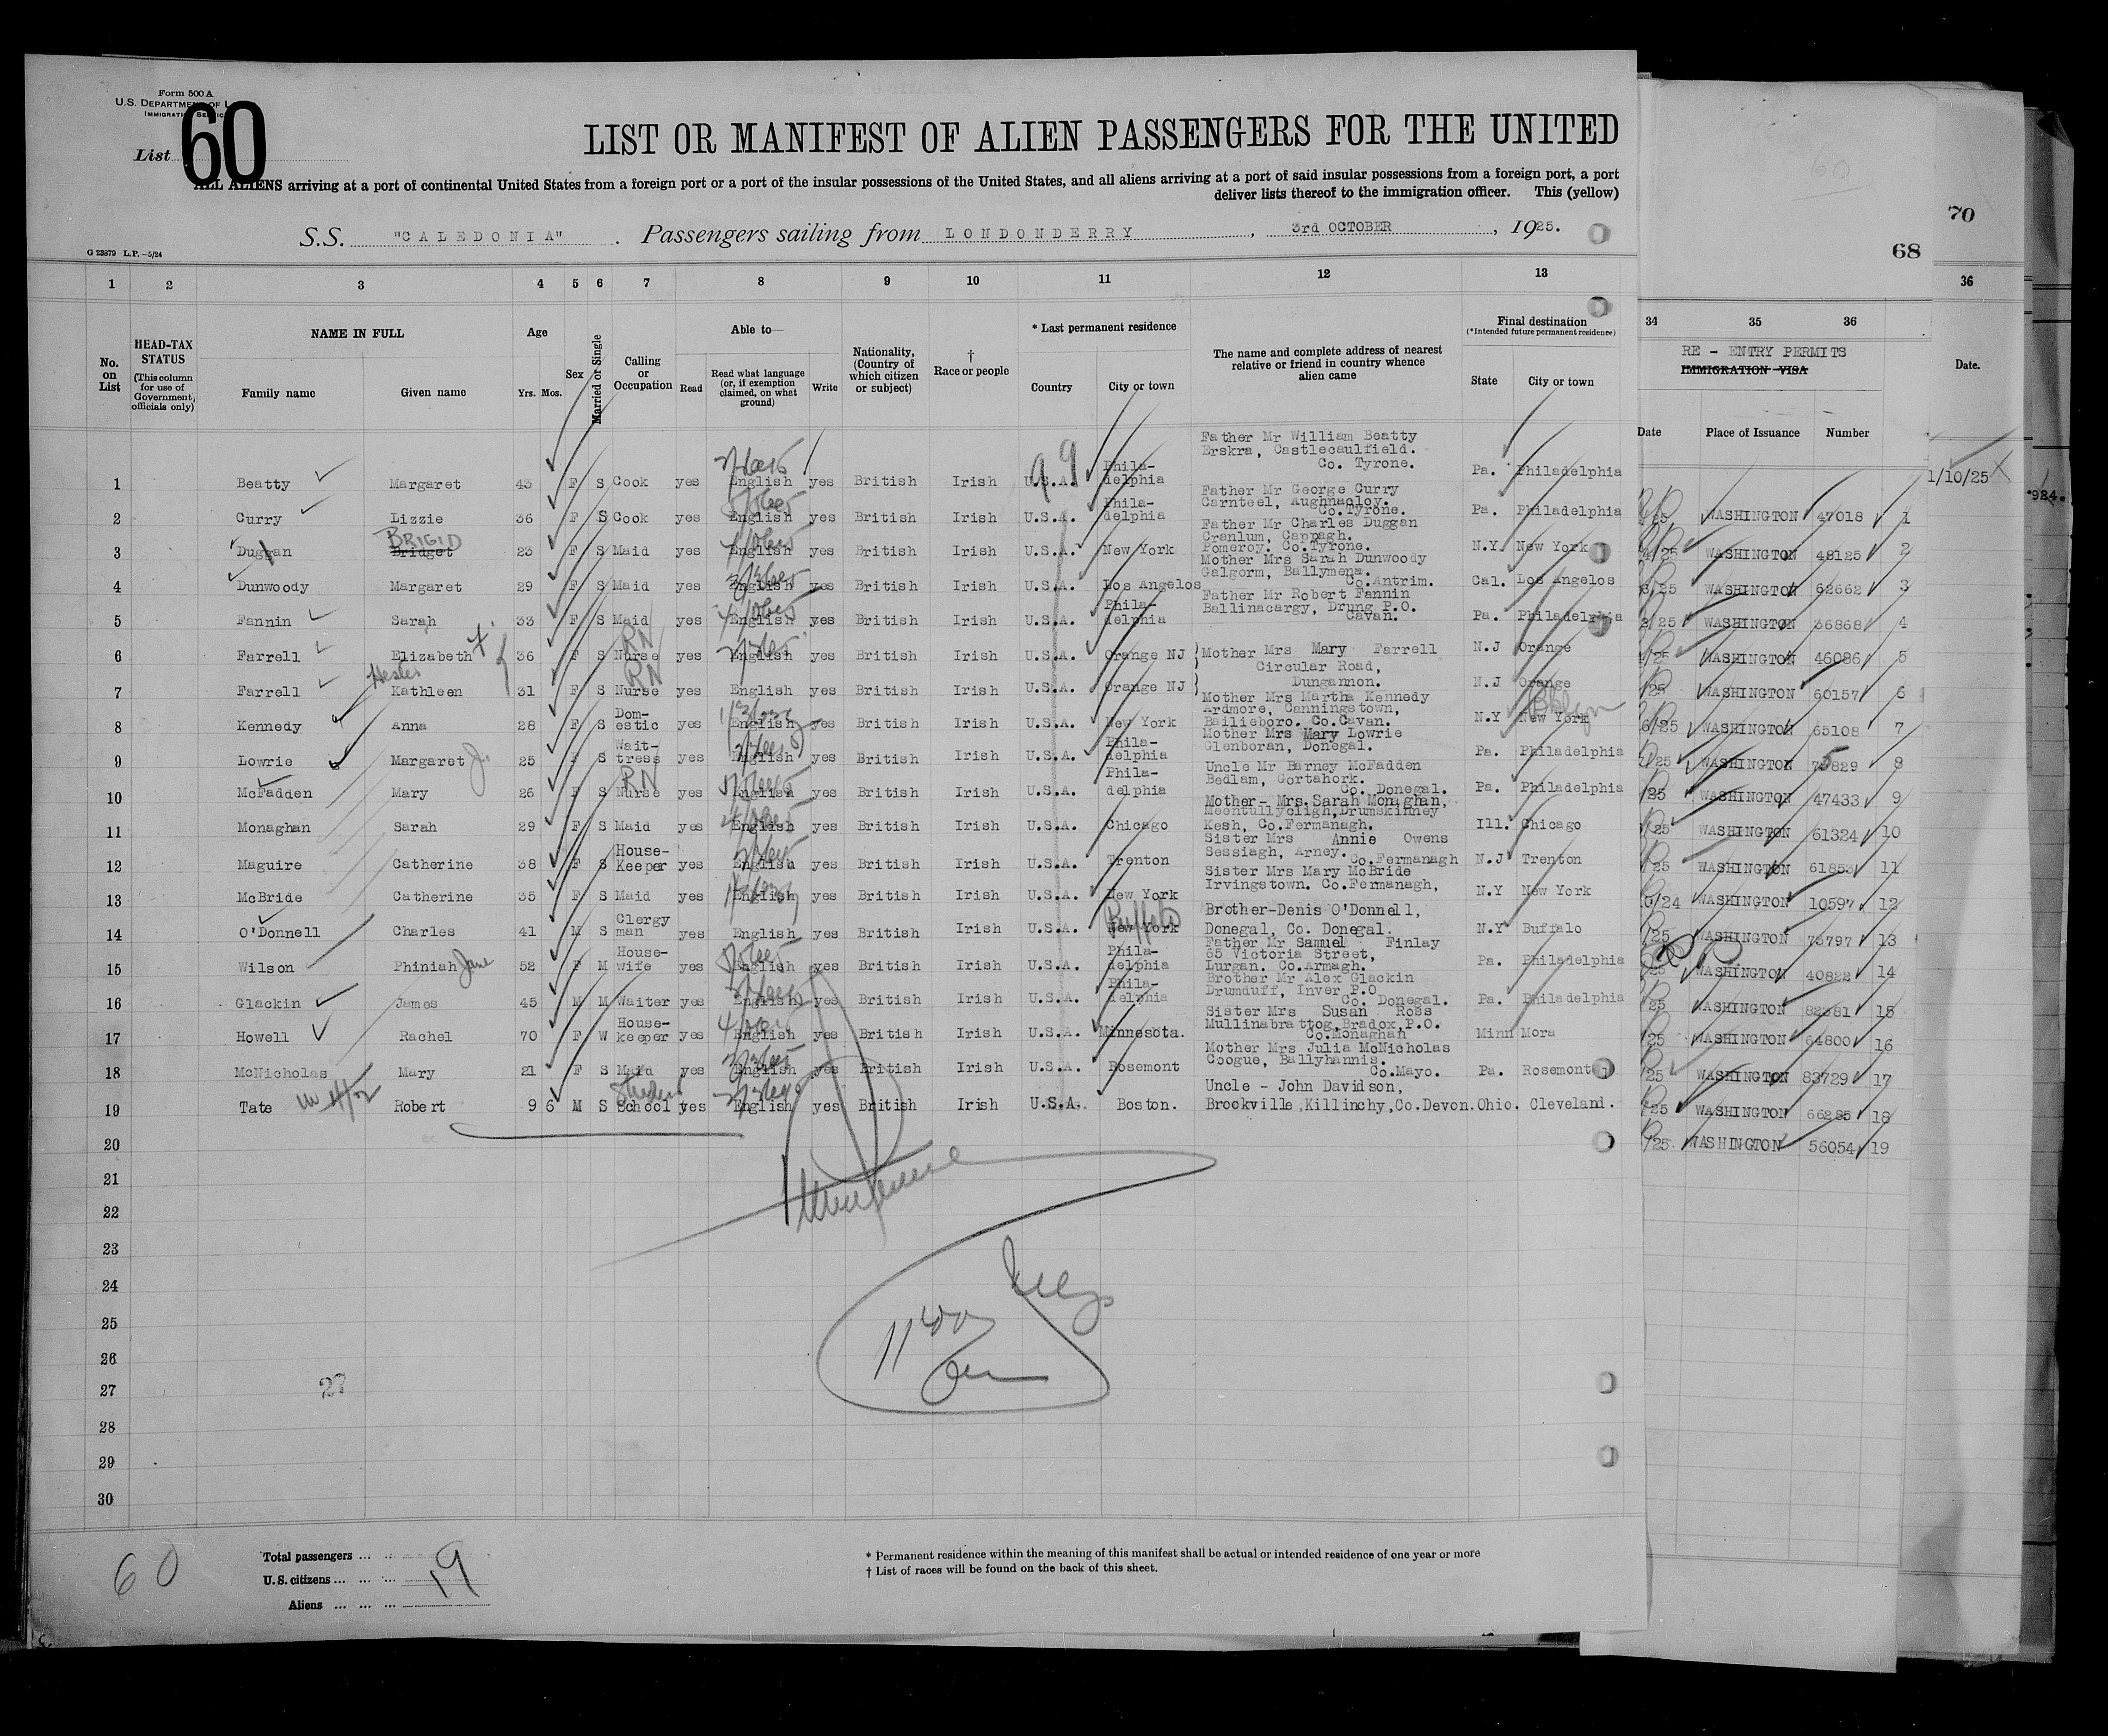 Form 500 A
U.S. DEPARTMENT OF L
IMMIGRATION SERVICE
List 60
LIST OR MANIFEST OF ALIEN PASSENGERS FOR THE UNITED
ALL ALIENS arriving at a port of continental United States from a foreign port or a port of the insular possessions of the United States, and all aliens arriving at a port of said insular possessions from a foreign port, a port
deliver lists thereof to the immigration officer. This (yellow)
S.S. "CALEDONIA". Passengers sailing from LONDONDERRY, 3rd OCTOBER, 1925.
G 23879 L.P.—5/24
60
70
68
1 2 3 4 5 6 7 8 9 10 11 12 13 34 35 36 36
No. on List
HEAD-TAX STATUS (This column for use of Government officials only)
NAME IN FULL
Family name Given name
Age
Yrs. Mos.
Sex
Married or Single
Calling or Occupation
Able to—
Read
Read what language (or, if exemption claimed, on what ground)
Write
Nationality, (Country of which citizen or subject)
† Race or people
* Last permanent residence
Country City or town
The name and complete address of nearest relative or friend in country whence alien came
Final destination
(*Intended future permanent residence)
State City or town
RE - ENTRY PERMITS
IMMIGRATION VISA
Date Place of Issuance Number
Date.
1/10/25
924.
1 Beatty Margaret 43 F S Cook yes English yes British Irish U.S.A. Phila-delphia Father Mr William Beatty Erskra, Castlecaulfield. Co. Tyrone. Pa. Philadelphia
2 Curry Lizzie 36 F S Cook yes English yes British Irish U.S.A. Phila-delphia Father Mr George Curry Carnteel, Aughnacloy. Co.Tyrone. Pa. Philadelphia
3 Duggan Bridget BRIGID 23 F S Maid yes English yes British Irish U.S.A. New York Father Mr Charles Duggan Cranlum, Cappagh. Pomeroy. Co.Tyrone. N.Y. New York
4 Dunwoody Margaret 29 F S Maid yes English yes British Irish U.S.A. Los Angelos Mother Mrs Sarah Dunwoody Galgorm, Ballymena. Co.Antrim. Cal. Los Angelos
5 Fannin Sarah 33 F S Maid yes English yes British Irish U.S.A. Phila-delphia Father Mr Robert Fannin Ballinacargy, Drung P.O. Cavan. Pa. Philadelphia
6 Farrell Elizabeth 36 F S Nurse RN yes English yes British Irish U.S.A. Orange NJ Mother Mrs Mary Farrell N.J Orange
7 Farrell Kathleen 31 F S Nurse RN yes English yes British Irish U.S.A. Orange NJ Circular Road, Dungannon. N.J Orange
8 Kennedy Anna 28 F S Dom-estic yes English yes British Irish U.S.A. New York Mother Mrs Martha Kennedy Ardmore, Canningstown, Bailieboro. Co.Cavan. N.Y New York
9 Lowrie Margaret J. 25 F S Wait-tress yes English yes British Irish U.S.A. Phila-delphia Mother Mrs Mary Lowrie Glenboran, Donegal. Pa. Philadelphia
10 McFadden Mary 26 F S Nurse RN yes English yes British Irish U.S.A. Phila-delphia Uncle Mr Barney McFadden Bedlam, Gortahork. Co. Donegal. Pa. Philadelphia
11 Monaghan Sarah 29 F S Maid yes English yes British Irish U.S.A. Chicago Mother- Mrs.Sarah Monaghan, Meentullycligh,Drumskinney Kesh, Co.Fermanagh. Ill. Chicago
12 Maguire Catherine 38 F S House-Keeper yes English yes British Irish U.S.A. Trenton Sister Mrs Annie Owens Sessiagh, Arney. Co.Fermanagh N.J Trenton
13 McBride Catherine 35 F S Maid yes English yes British Irish U.S.A. New York Sister Mrs Mary McBride Irvingstown. Co.Fermanagh, N.Y New York
14 O'Donnell Charles 41 M S Clergy man yes English yes British Irish U.S.A. New York Buffalo Brother-Denis O'Donnell, Donegal, Co. Donegal. N.Y Buffalo
15 Wilson Phiniah Jane 52 F M House-wife yes English yes British Irish U.S.A. Phila-delphia Father Mr Samuel Finlay 65 Victoria Street, Lurgan. Co.Armagh. Pa. Philadelphia
16 Glackin James 45 M M Waiter yes English yes British Irish U.S.A. Phila-delphia Brother Mr Alex Glackin Drumduff, Inver P.O Co. Donegal. Pa. Philadelphia
17 Howell Rachel 70 F W House-keeper yes English yes British Irish U.S.A. Minnesota. Sister Mrs Susan Ross Mullinabrattog,Bradox,P.O. Co.Monaghan Minn Mora
18 McNicholas Mary 21 F S Maid yes English yes British Irish U.S.A. Rosemont Mother Mrs Julia McNicholas Coogue, Ballyhannis. Co.Mayo. Pa. Rosemont
19 Tate Robert 9 6 M S School Student yes English yes British Irish U.S.A. Boston. Uncle - John Davidson, Brookville,Killinchy,Co.Devon. Ohio. Cleveland.
20
21
22
23
24
25
26
27
28
29
30
/25 WASHINGTON 47018 1
/25 WASHINGTON 48125 2
/25 WASHINGTON 62662 3
/25 WASHINGTON 36868 4
/25 WASHINGTON 46086 5
/25 WASHINGTON 60157 6
/25 WASHINGTON 65108 7
/25 WASHINGTON 75829 8
/25 WASHINGTON 47433 9
/25 WASHINGTON 61324 10
/25 WASHINGTON 61853 11
/24 WASHINGTON 10597 12
/25 WASHINGTON 73797 13
/25 WASHINGTON 40822 14
/25 WASHINGTON 82981 15
/25 WASHINGTON 64800 16
/25 WASHINGTON 83729 17
/25 WASHINGTON 66285 18
/25 WASHINGTON 56054 19
27
60
Total passengers ... 
U.S. citizens ... ... ...
Aliens ... ... ...
19
* Permanent residence within the meaning of this manifest shall be actual or intended residence of one year or more
† List of races will be found on the back of this sheet.